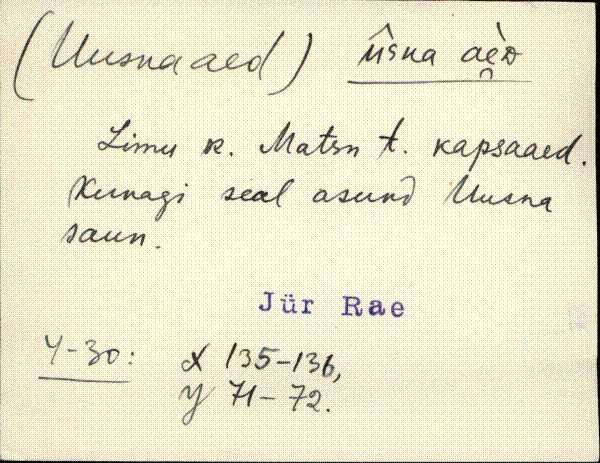 (Uusna aed) ûsna aèᴅ
Limu k. Matsn t. kapsaaed.
Kunagi seal asund Uusna
saun.
Jür Rae
Y-30: X 135-136,
Y 71-72.